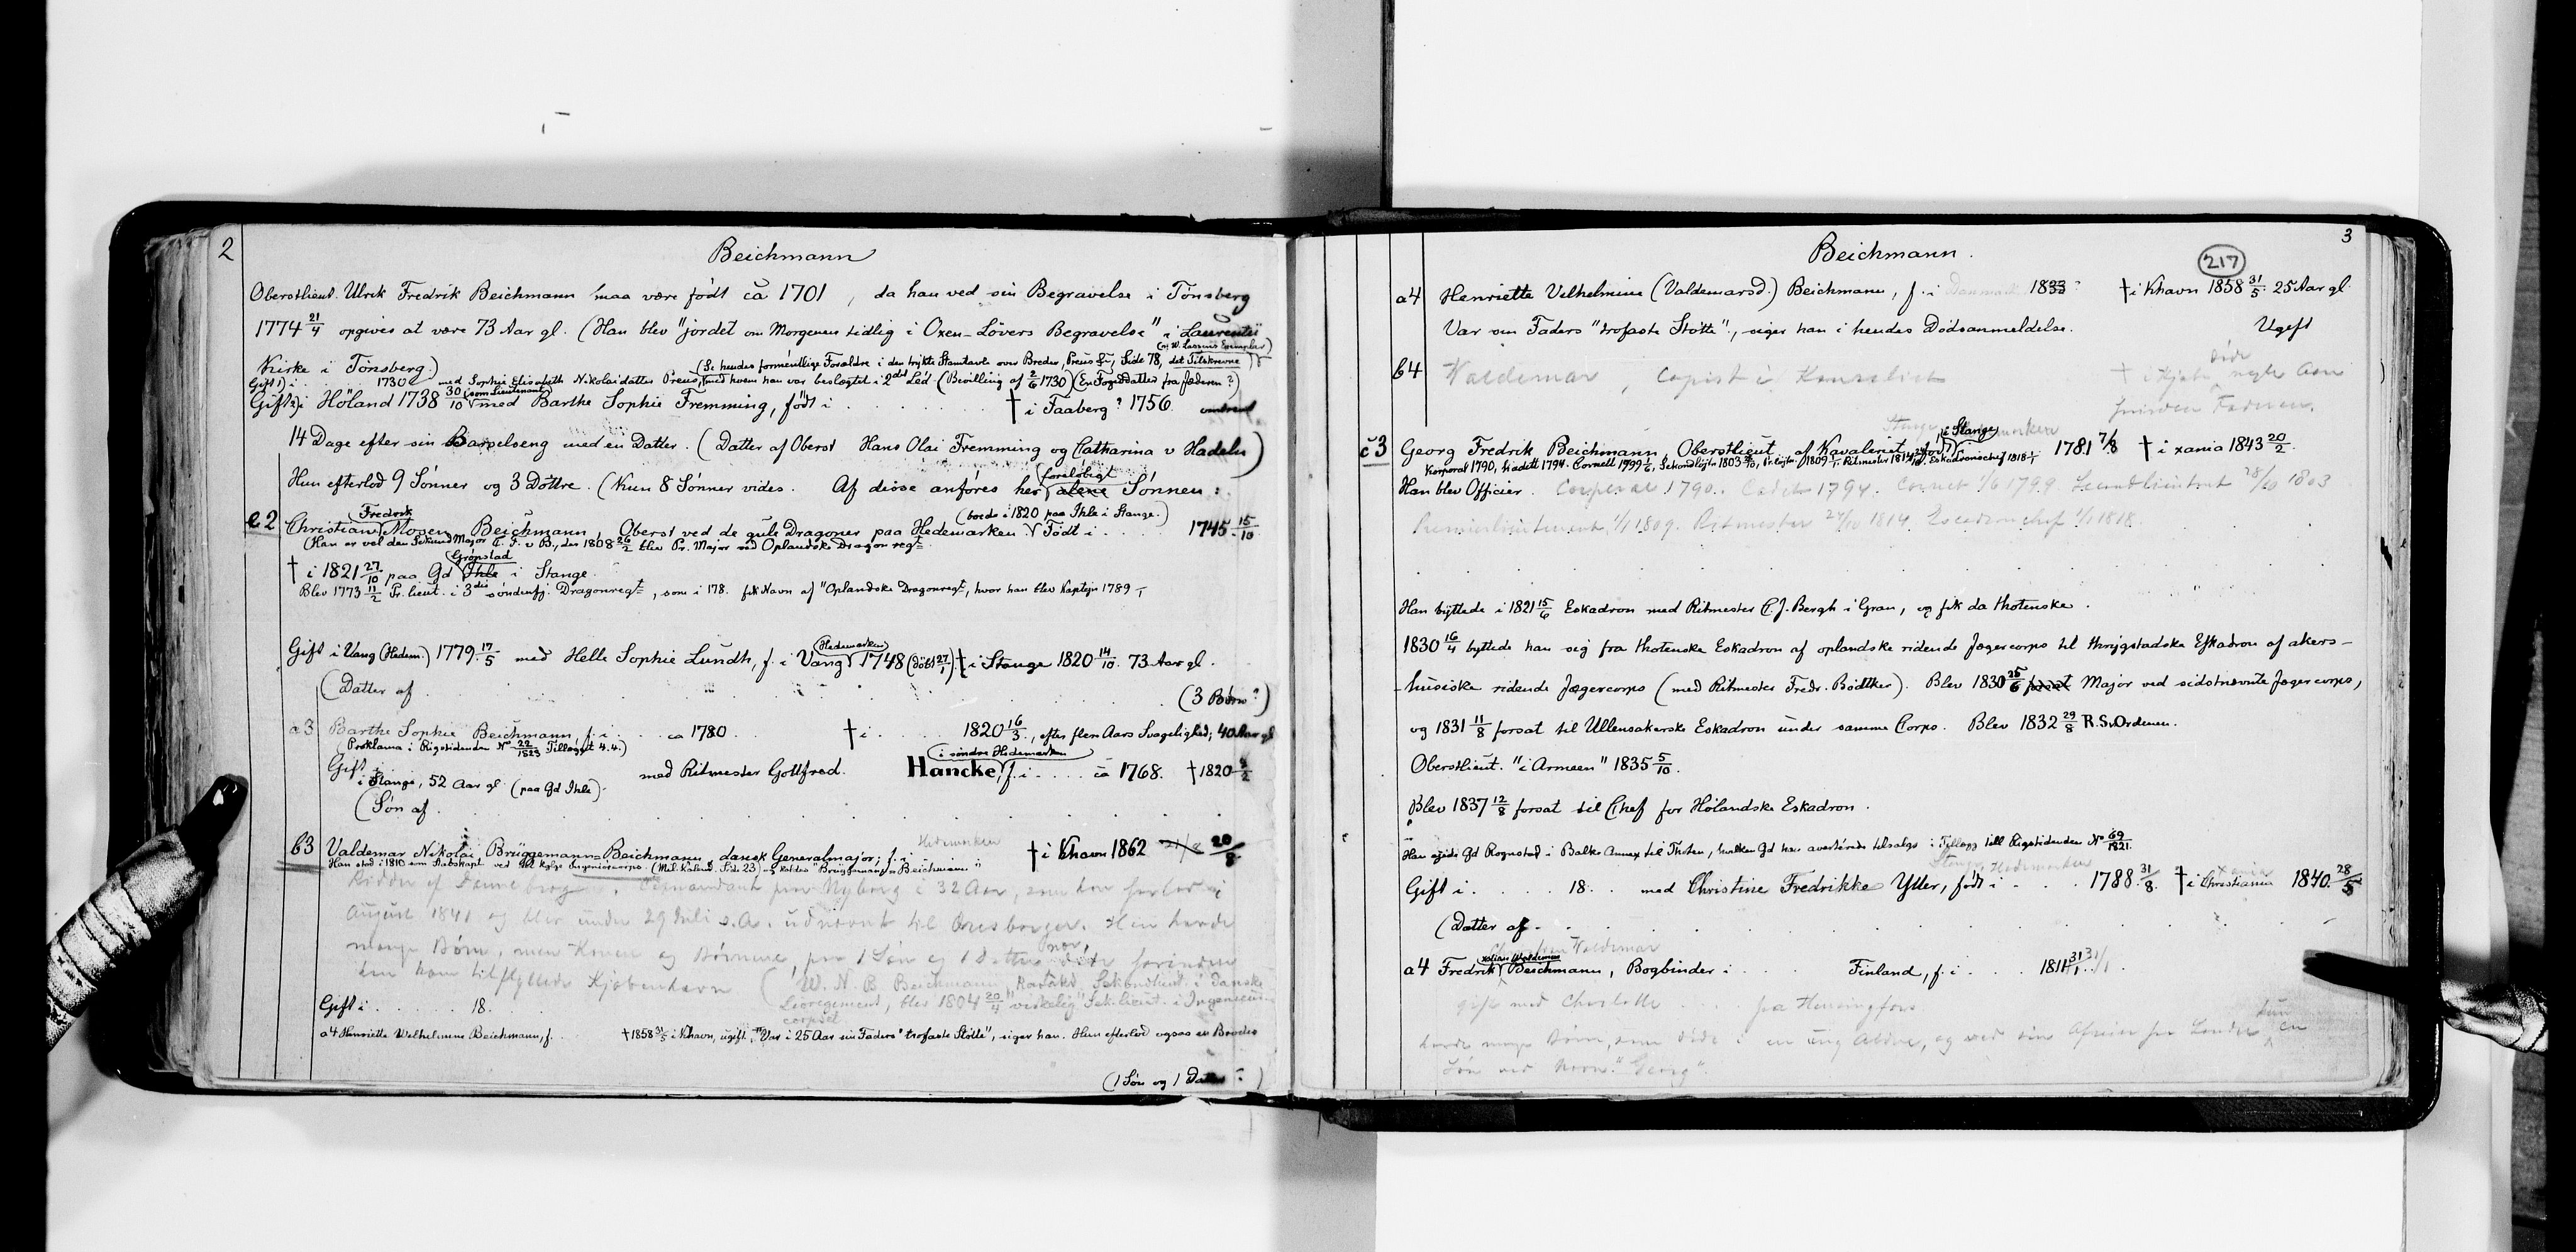 2
Beichmann
Oberstlieut. Ulrik Fredrik Beichmann maa være født ca 1701, da han ved sin Begravelse i Tönsberg
1774 21/4 opgives at være 73 Aar gl. (Han blev "jordet om Morgenen tidlig i Oxen-Lövers Begravelse" i Laurentii
Kirke i Tönsberg.) (Se hendes formentlige Forældre i den trykte Stamtavle over Breder, Preus &, Side 78, det Tilskrevne
Gift 1) i 1730 med Sophie Elisabeth Nikolaidatter Preus, med hvem han var beslægtet i 2det Led. (Bevilling af 2/6 1730) (En Fogeddatter fra Jæderen?)
Gift 2) i Höland 1738 30/10 (som Lieutenant) med Barthe Sophie Fremming, født i . . . † i Faaberg? 1756
14 Dage efter sin Barselseng med en Datter. (Datter af Oberst Hans Olai Fremming og Catharina v Hadeln)
Hun efterlod 9 Sönner og 3 Döttre. (Kun 8 Sönner vides. Af disse anföres her foreløbigt alene Sönnen:
c2 Christian Fredrik Mogen Beichmann, Oberst ved de gule Dragoner paa Hedemarken. (boede i 1820 paa Ihle i Stange.) Født i . . . 1745 15/10
(Han er vel den Sekund Major C. F. v B., der 1808 26/2 blev Pr. Major ved Oplandske Dragonregt
† i 1821 27/10 paa Gd Grönstad Ihle i Stange.
Blev 1773 11/2 Pr. lieut. i 3die söndenfj. Dragonregt, som i 178. fik Navn af "Oplandske Dragonregt, hvor han blev Kaptejn 1789
Gift i Vang (Hedem.) 1779 17/5 med Helle Sophie Lundh, f. i Vang Hedemarken 1748 (döbt 27/1) † i Stange 1820 14/10. 73 Aar gl.
(Datter af . . . (3 Börn?)
a3 Barthe Sophie Beichmann, f. i . . . ca 1780 † i . . . 1820 16/3, efter flere Aars Svagelighed, 40 Aar gl
(Proklama i Rigstidenden No 22/1823 Tillægget 4.4.)
Gift i . . . med Ritmester Gottfred Hancke, i søndre Hedemarken f. i . . . ca 1768. † 1820 9/2
i Stange, 52 Aar gl. (paa Gd Ihle).
(Sön af . . .
b3 Valdemar Nikolai Brüggemann=Beichmann, dansk Generalmajor; f. i Hedemarken † i Khavn 1862 20/8
Han stod i 1810 som Stabskapt ved det kglge Ingenieurcorps. (Mil. Kalend. Side 23) og kaldes "Brüggemann=Beichmann"
Ridder af Dannebrog. Commandant paa Nyborg i 32 Aar, som han forlod i
August 1841 og blev under 29 Juli s. A. udnævnt til
mange Börn, men Konen og Börnene, paa 1 Sön og 1 Datter nær, döde forinden
han kom tilflyttede Kjöbenhavn. (W. N. B. Beichmann, Sekondlieut. i Danske
Livregement, blev 1804 20/4 "virkelig" Sek. lieut. i Ingenieur
corpset
Gift i . . . 18 .
a4 Henriette Welhelmine Beichmann, f. † 1858 31/5 i Khavn, ugift. "Var i 25 Aar sin Faders "trofaste Stötte", siger han. Hun efterlod ogsaa en Broder
(1 Sön og 1 Datter ?)
3
217
Beichmann.
a4 Henriette Velhelmine (Valdemarsd.) Beichmann, f. i Danmark 1833? † i Khavn 1858 31/5 25 Aar gl
Var sin Faders "trofaste Stötte", siger han i hendes Dödsanmeldelse. Ugift
b4 Waldemar, Copist i Kancelliet † döde i Kjøbh nogle Aar
forinden Faderen.
c3 Georg Fredrik Beichmann, Oberstlieut. af Kavaleriet, född i Stange 1781 7/8 † i xania 1843 20/2.
Korporal 1790, Kadett 1794. Cornett 1799 1/6, Sekondlöjtn. 1803 28/10, Pr. löjtn. 1809 1/1, Ritmester 1814 24/10. Eskadronschef 1818 1/1
Han blev Officier. Corporal 1790. Cadet 1794. Cornet 1/6 1799. Secondlieutnt 28/10 1803
Premierlieutenant 1/1 1809. Ritmester 24/10 1814. Escadronchef 1/1 1818.
Han byttede i 1821 15/6 Eskadron med Ritmester C. J. Bergh i Gran, og fik da thotenske.
1830 16/4 byttede han sig fra thotenske Eskadron af oplandske ridende Jægercorps til thrygstadske Eskadron af akers-
-husiske ridende Jægercorps (med Ritmester Fredr. Bødtker). Blev 1830 25/6 forsat Major ved sidstnævnte Jægercorps,
og 1831 11/8 forsat til Ullensakerske Eskadron under samme Corps. Blev 1832 29/8 R. Sv. Ordenen.
Oberstlieut. "i Armeen" 1835 5/10.
Blev 1837 12/8 forsat til Chef for Hölandske Eskadron.
Han ejede Gd Rognstad i Balke Annex til Thoten, hvilken Gd har averterede tilsalgs i Tillæg till Rigstidenden No 69/1821.
Gift i . . . 18 . . med Christine Fredrikke Ytter, født i Stange Hedemarken 1788 31/8. † i Christiania 1840 28/5
(Datter af . . .
a4 Fredrik Christian Waldemar Beichmann, Bogbinder i . . . Finland, f. i . . . 1811 31/1.
gift med Charlotte . . . fra Helsingfors
havde mange Börn, som döde i en ung Alder, og ved sin Afreise fra Landet kun en
Sön ved Navn "Georg".